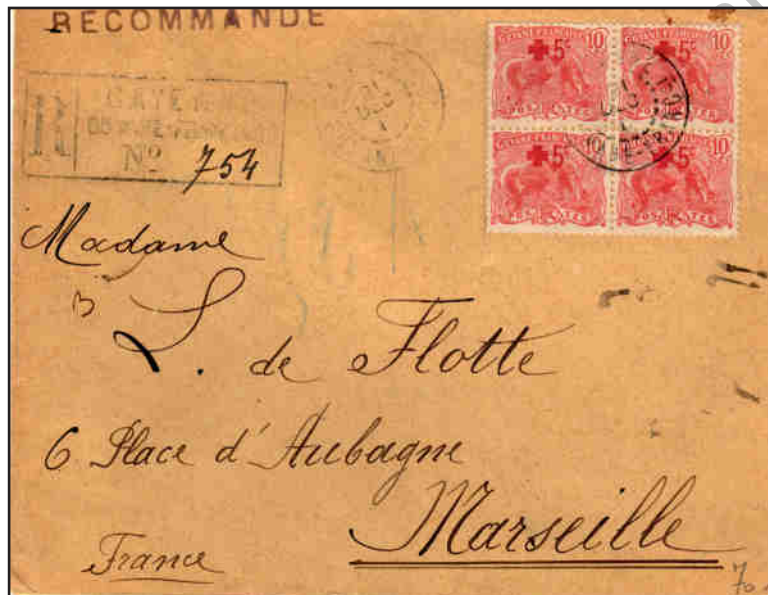 RECOMMANDE
R
CAYENNE
Nº 754
GUYANE FRANÇAISE 10
+5c
POSTES
GUYANE FRANÇAISE 10
+5c
POSTES
GUYANE FRANÇAISE 10
+5c
POSTES
GUYANE FRANÇAISE 10
+5c
POSTES
DEC
Madame
L. de Flotte
6 Place d'Aubagne
Marseille
France
70